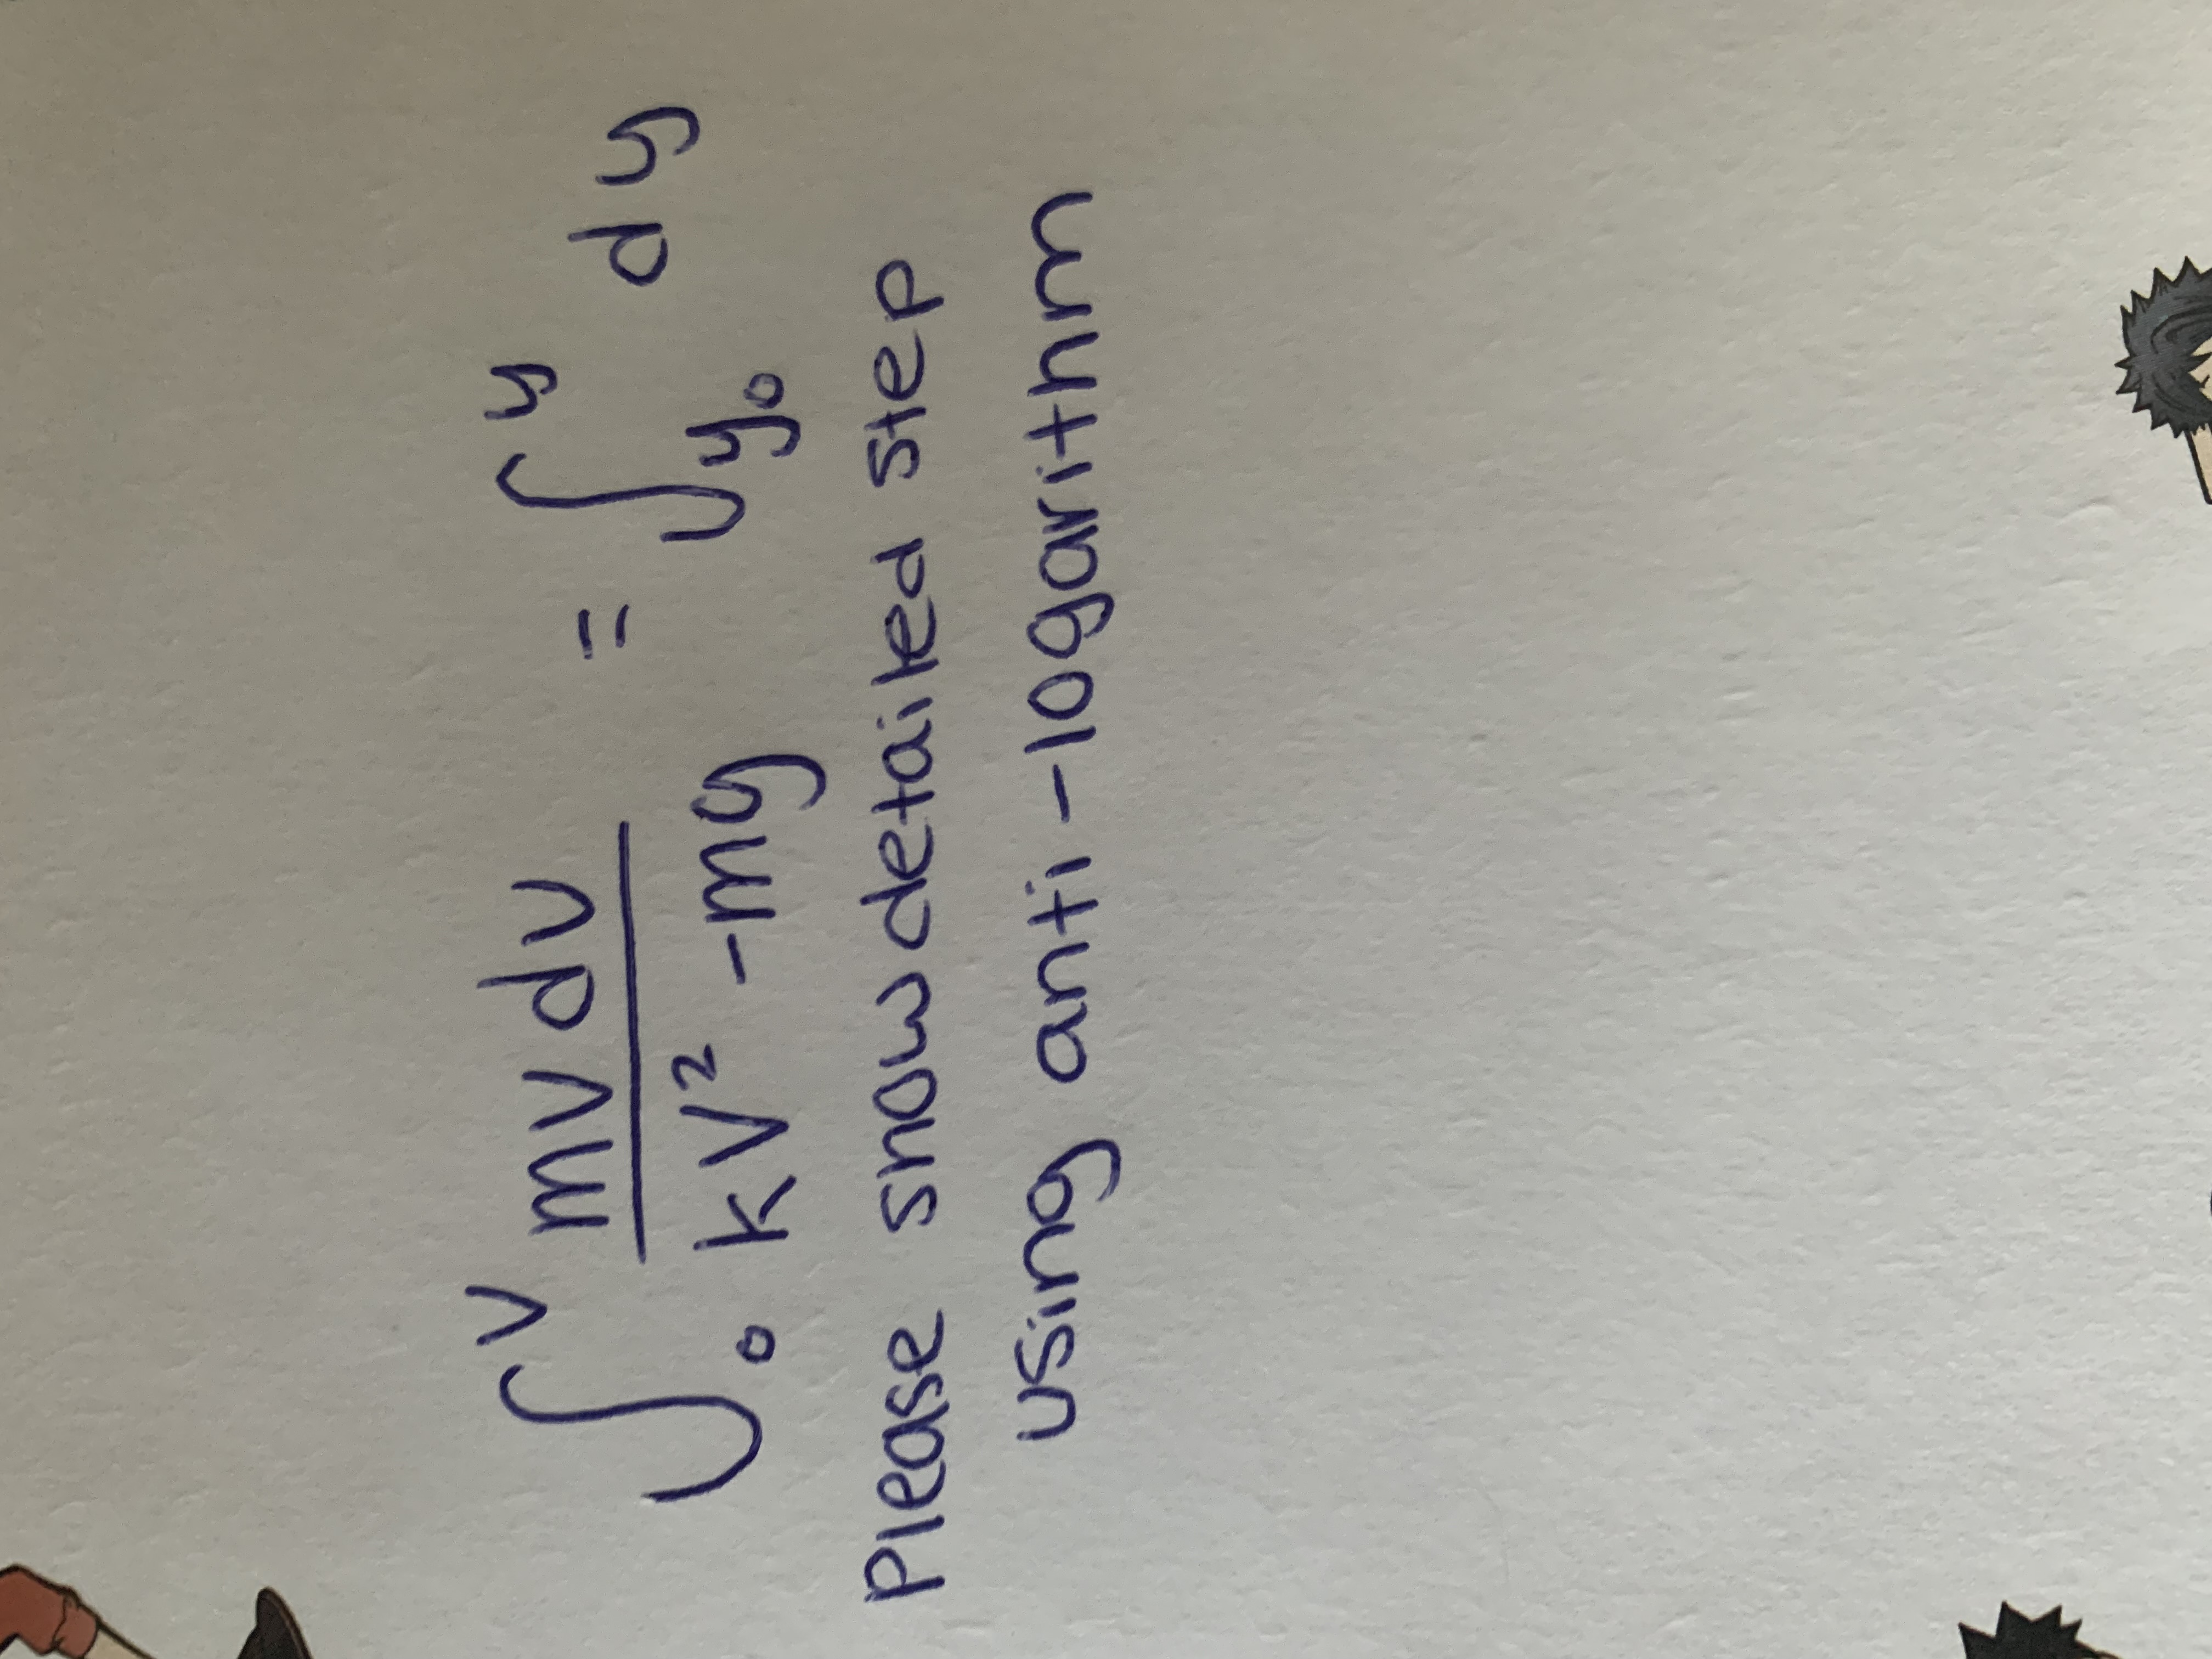 ∫₀ᵛ mv dv / kv² - mg = ∫ᵧ₀ʸ dy
Please show detailed step
using anti-logarithm